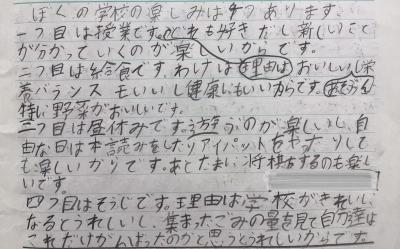 ぼくの学校の楽しみは4つあります。
一つ目は授業です。　　も好きだし新しいこと
が分かっていくのが楽しいからです。
二つ目は給食です。わけは理由はおいしいし栄
養バランスモいいし健康にもいいからです。
特に野菜がおいしいです。
三つ目は昼休みです。遊ぶのが楽しいし、自
由な日は本読みをしたりアイパットをやったりしても
も楽しいからです。あとたまに将棋をするのも楽し
いです。
四つ目はそうじです。理由は学校がきれいに
なるとうれしいし、集まったごみの量を見て自分達は
これだけがんばったのかと思うとうれしいからです。